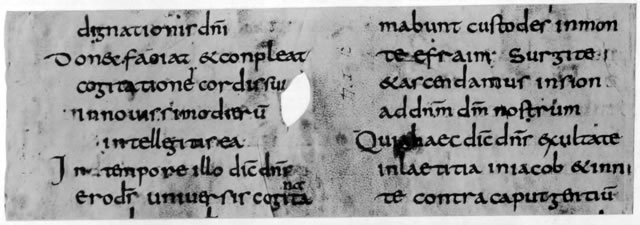 dignationis dni
Donec faciat & conpleat
cogitatione cordis sui
in novissimo dierū
intellegitis ea
In tempore illo dic̄ dn̄s
erods universis cognita
mabunt custodes in mon
te efraim Surgite
& ascendamus in sion
ad dn̄m dm̄ nostrum
Quia haec dic̄ dn̄s exultate
in laetitia iniacob & inni
te contra caput gentiū